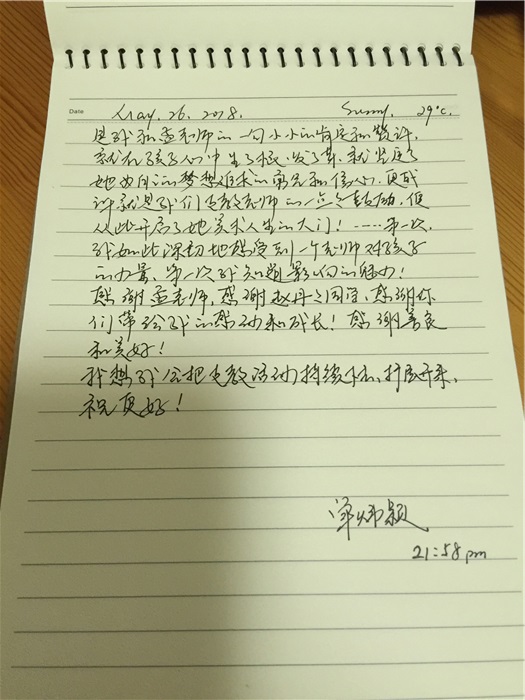 Date May. 26. 2018. Sunny. 29℃.
是我和孟老师的一句小小的肯定和赞许,
就在孩子心中生了根、发了芽,就坚定了
她为自己的梦想追求的勇气和信心,更或
许就是我们支教老师的一点点鼓励,便
从此开启了她美术人生的大门!……第一次,
我如此深切地感受到一个老师对孩子
的力量,第一次我知道影响的魅力!
感谢孟老师,感谢赵丹之同学,感谢你
们带给我的感动和成长!感谢善良
和美好!
我想我会把支教活动持续下去、扩展开来,
祝更好!
21:58 pm